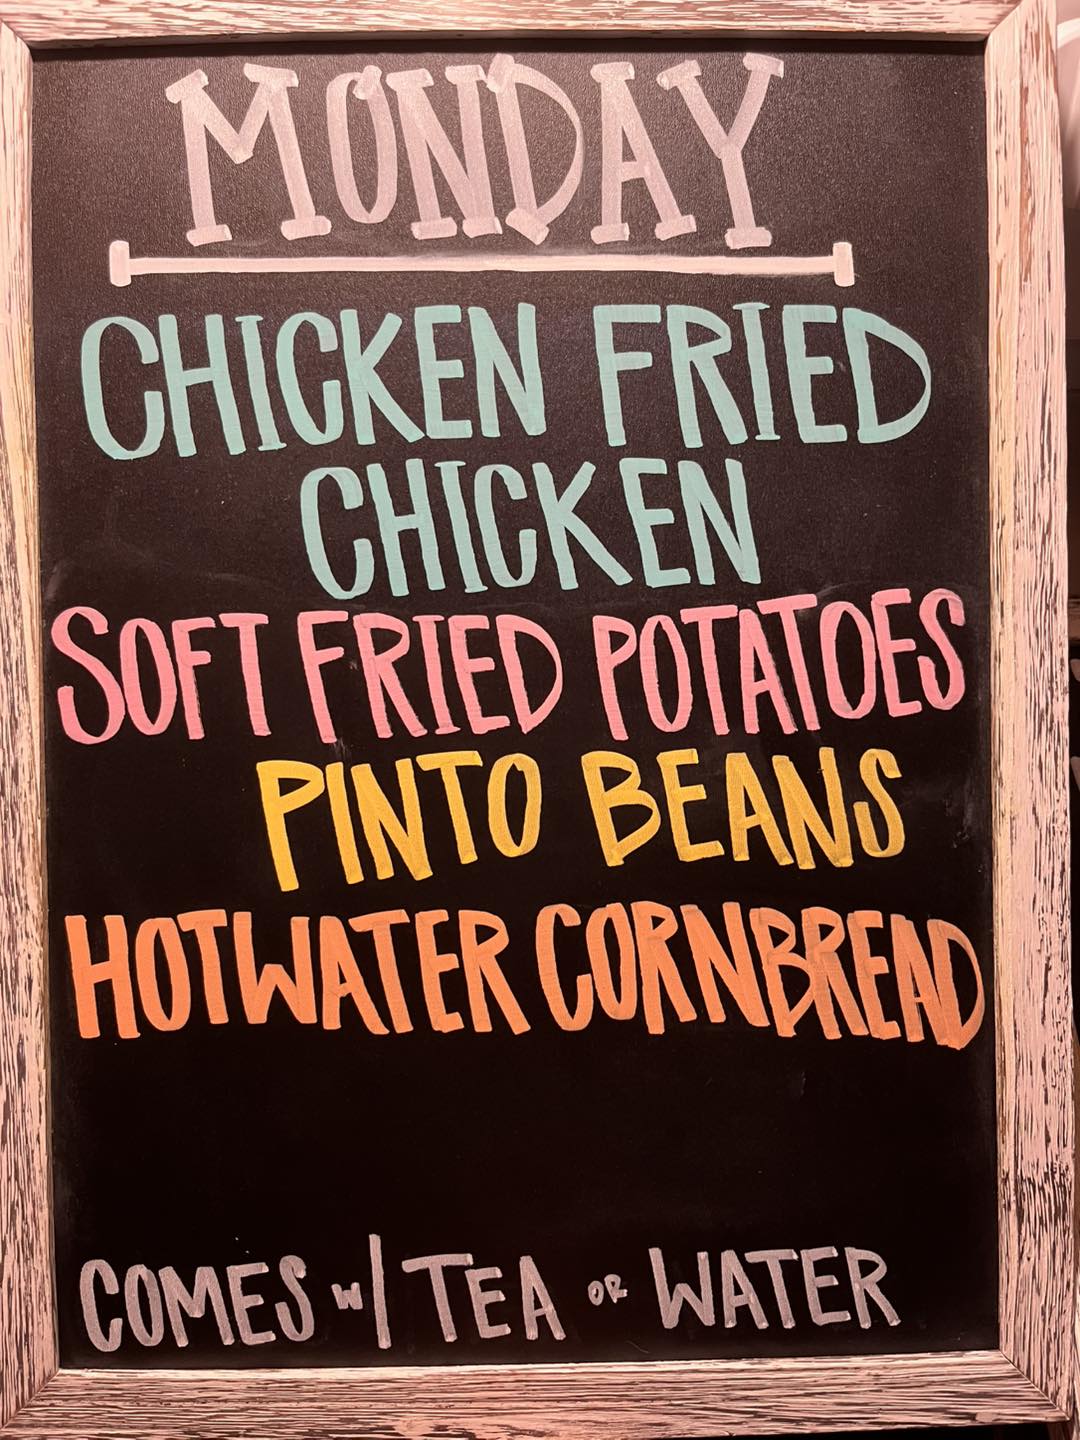 MONDAY
CHICKEN FRIED
CHICKEN
SOFT FRIED POTATOES
PINTO BEANS
HOTWATER CORNBREAD
COMES w/ TEA OR WATER